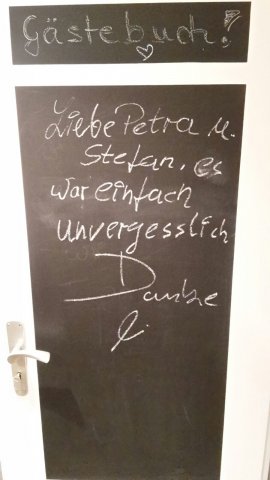 Gästebuch!
Liebe Petra u.
Stefan, es
war einfach
unvergesslich
Danke